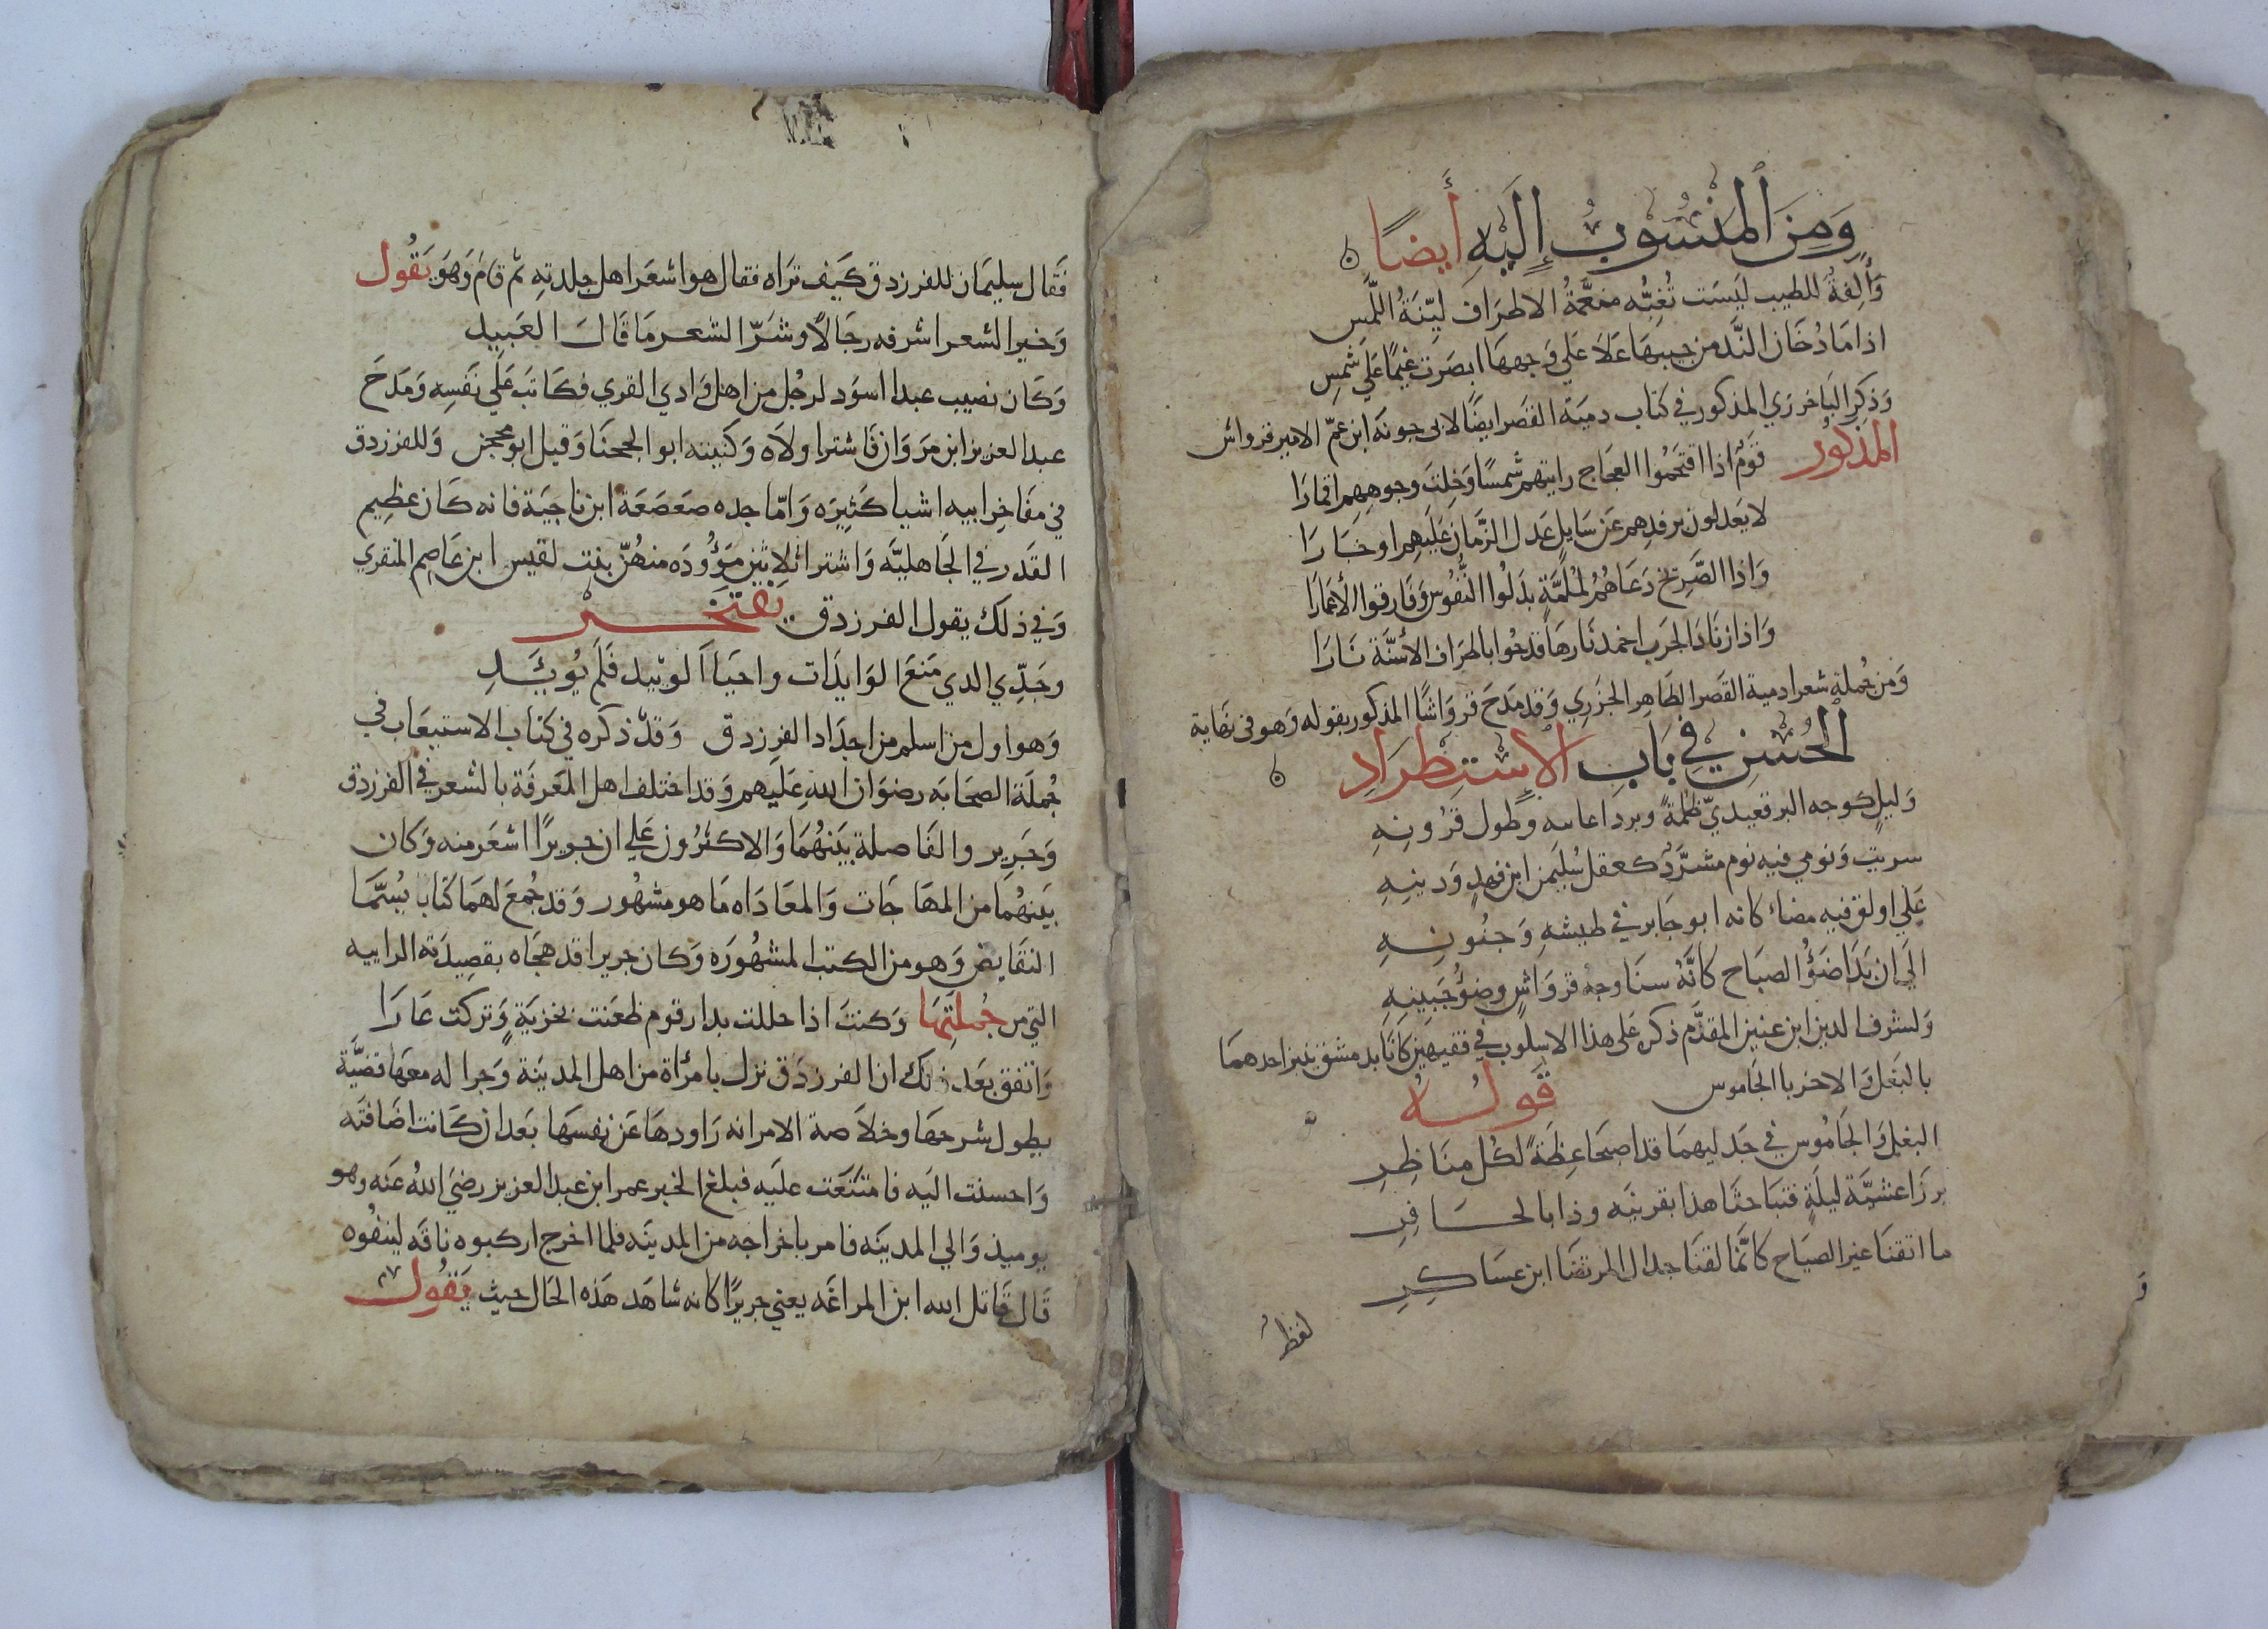 وَمِنَ المَنْسُوْبِ إِلَيْهِ أَيضًا
وَأَلِفةٌ للطيب ليَست تُغِبُّه منعَّمةُ الاطرَاف ليّنَةُ اللَّمس
اذا مَا دُخَان النَّد من جيبهَا عَلاَ عَلي وَجهِهَا ابصَرت غيمًا عَلَي شمسِ
وَذكر البَاخرزي المذكور في كتاب دميَة القصَر ايضًا لابي جوثه ابن عمّ الامير قرواش
المذكور
قَومٌ اذا اقتحَمُوا العجَاج رايتهم شمسًا وَخلِتَ وجوههم اقمارَا
لا يَعدلون برفدِهم عَن سَايلٍ عَدل الزَّمان عَليَهِم اوجَارَا
وَاذا الصَّريخ دَعَاهُمُ لمُلمَّةٍ بذلُوا النُّفُوس وَفَارقوا الأعمَارَا
وَاذا زنَاد الحَرب اخمد نَارهَا قدحُوا باطرَاف الأسنَّة نَارَا
وَمن جُملةِ شعرا دمية القصَر الظاهر الجزَري وَقد مَدحَ قروَاشًا المذكور بقوله وَهو في نهَاية
الحُسْنِ فِي بَابِ الإِسْتِطْرَادِ
وَليلٍ كوجه البرقعيديّ ظلمَةً وبرد اغانيه وطول قرُونِهِ
سريت وَنومي فيه نوم مشرَّدٌ كعقل سُليَمن ابن فهدٍ وَدينِهِ
عَلي اولق فيه مضاءٌ كانه ابو جَابر في طيشهِ وَجنُونهِ
الَي ان بَدَا ضَوْءُ الصبَاح كانَّهُ سنَا وجهُ قرْوَاشٍ وضوْءُ جَبينِهِ
وَلشرف الدين ابن عنين المقدَّم ذكره عَلى هذا الاسلُوب في فقيهين كانَا بدمشق ينبز احدهمَا
بالبَغل وَالاخر با الجَاموس قَولُـــهُ
البغل وَالجَامُوس في جَدليهمَا قد اصبحَا عِظَةً لكُل منَاظِرِ
برزَا عشيَّة ليلَةٍ فتبَاحثَا هذا بقرنيَه وذا بالحـــافِرِ
ما اتقنَا غير الصيَاح كانَّما لقنَا جدال المرتضَا ابن عسَاكِـرِ
لفظ
فَقال سليمَان للفرزدق كيَف ترَاه فقال هو اشعَر اهل جلدتهِ ثم قامَ وَهوَ يَقُول
وَخير الشعر اشرفه رجَالاً وشَرّ الشعر مَا قَالَ العَبيد
وَكان نصيب عبدا اسوَد لرجُل من اهل وَادي القري فكاتبَ عَلَي نفسِه وَمَدحَ
عبد العزيز ابن مَروَان فَاشترا ولاَه وَكنيته ابو الحجنَا وَقيل ابو محجن وَللفرزدق
في مفَاخرِ ابيه اشيا كَثِيرَه وَامّا جده صَعصَعَة ابن ناجيَة فانه كان عظِيم
القَدَر في الجَاهليَّه وَاشترا ثلاثِين موَؤُدَه منهُنّ بنت لقيس ابن عَاصِم المنقري
وَفي ذلك يقول الفرزدق يَفتَخـــر
وجَدِّي الدي مَنعَ الوَايدَات واحيَا الوئيد فَلم يُوئَـــدِ
وَهو اول من اسلم من اجدَاد الفرزدق وَقدْ ذكرَه في كتاب الاستيعَاب في
جُملَة الصحَابَه رضوَان اللهِ عَليهم وَقد اختلف اهل المَعرفَة بالشعر في الفرزدق
وَجَرِير والمفَاصلة بَينهُمَا وَالاكثرُون عَلي ان جويرًا اشعَر منه وَكان
بَينهُما من المهَاجَات وَالمعَادَاه مَا هو مشهُور وَقد جُمعَ لهمَا كتاب يُسَمَّا
النقَايض وَهو من الكتب المشهُورَه وَكان جريرا قد هجَاه بقصيدَته الراييه
التي من جُملَتِهَا وَكنتَ اذا حللت بدار قوم ظعَنت بخزيَةٍ وَتركت عَارَا
وَاتفق بعَد ذلك ان الفرزدَق نزل بامرأة من اهل المدينَة وَجرا له معهَا قضيَّة
يطول شرحهَا وخلاَصة الامر انه رَاودهَا عَن نفسهَا بَعد ان كانت اضَافتَه
وَاحسنت اليَه فامتنَعَت عليَه فبلغ الخبر عمر ابن عبد العزيز رضيَ اللهُ عَنه وهو
يوميذ وَالي المدينَه فامر باخرَاجه من المدينَه فلما اخرج اركبوه ناقَه لينفُوه
قال قاتل الله ابن المراغَه يعني جريرًا كانه شاهَد هَذه الحَال حيث يَقُول